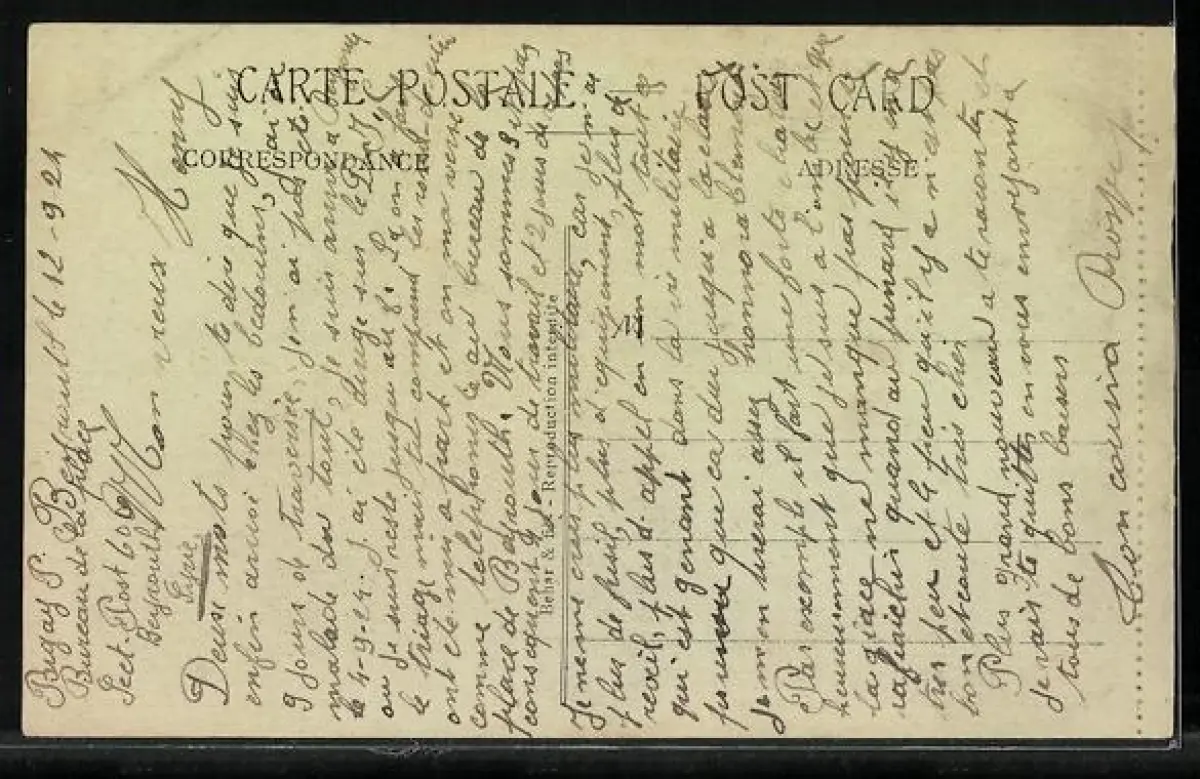 CARTE POSTALE
POST CARD
CORRESPONDANCE
ADRESSE
Behar & fils - Reproduction interdite
Bigay P. Beyrouth le 12-9-24
Bureau de la place
Sect. Post 600
Beyrouth
Syrie
Mon vieux Henry
Deux mots pour te dire que je suis
enfin arrivé chez les bedouins, j'ai
9 jours de traversée, j'en ai pas été
malade du tout, je suis arrivé a
le 4-9-24 j'ai été dirigé sur le
ou je suis resté jusqu'au 8. La on fait
le triage oui tu comprend les
ont été mis a part et on m'a versé
comme telephoniste au bureau de
place de Beyrouth. Nous sommes
consequent 2 jours de travail et 2 jours de
Je ne me crois plus militaire, car je n'ai
plus de fusil, plus d'equipement, plus de
reveil, plus d'appel en un mot tout
qui est genant dans la vie militaire
pourvu que ca dur jusqu'a la classe
je m'en tirerai assez honnorablement
Par exemple il fait une forte chaleur
heureusement que je suis a l'ombre et que
la glace ne manque pas pour
rafraichir quand au pinard il y en a
tres peu et le peu qu'il y a n'est pas
bon et coute très cher
Plus grand nouveau a te raconter
je vais te quitter en vous envoyant a
tous de bons baisers
Ton cousin Prosper